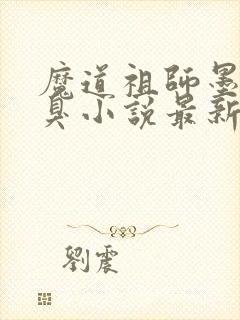 魔道祖師墨
臭小説最新
劉震